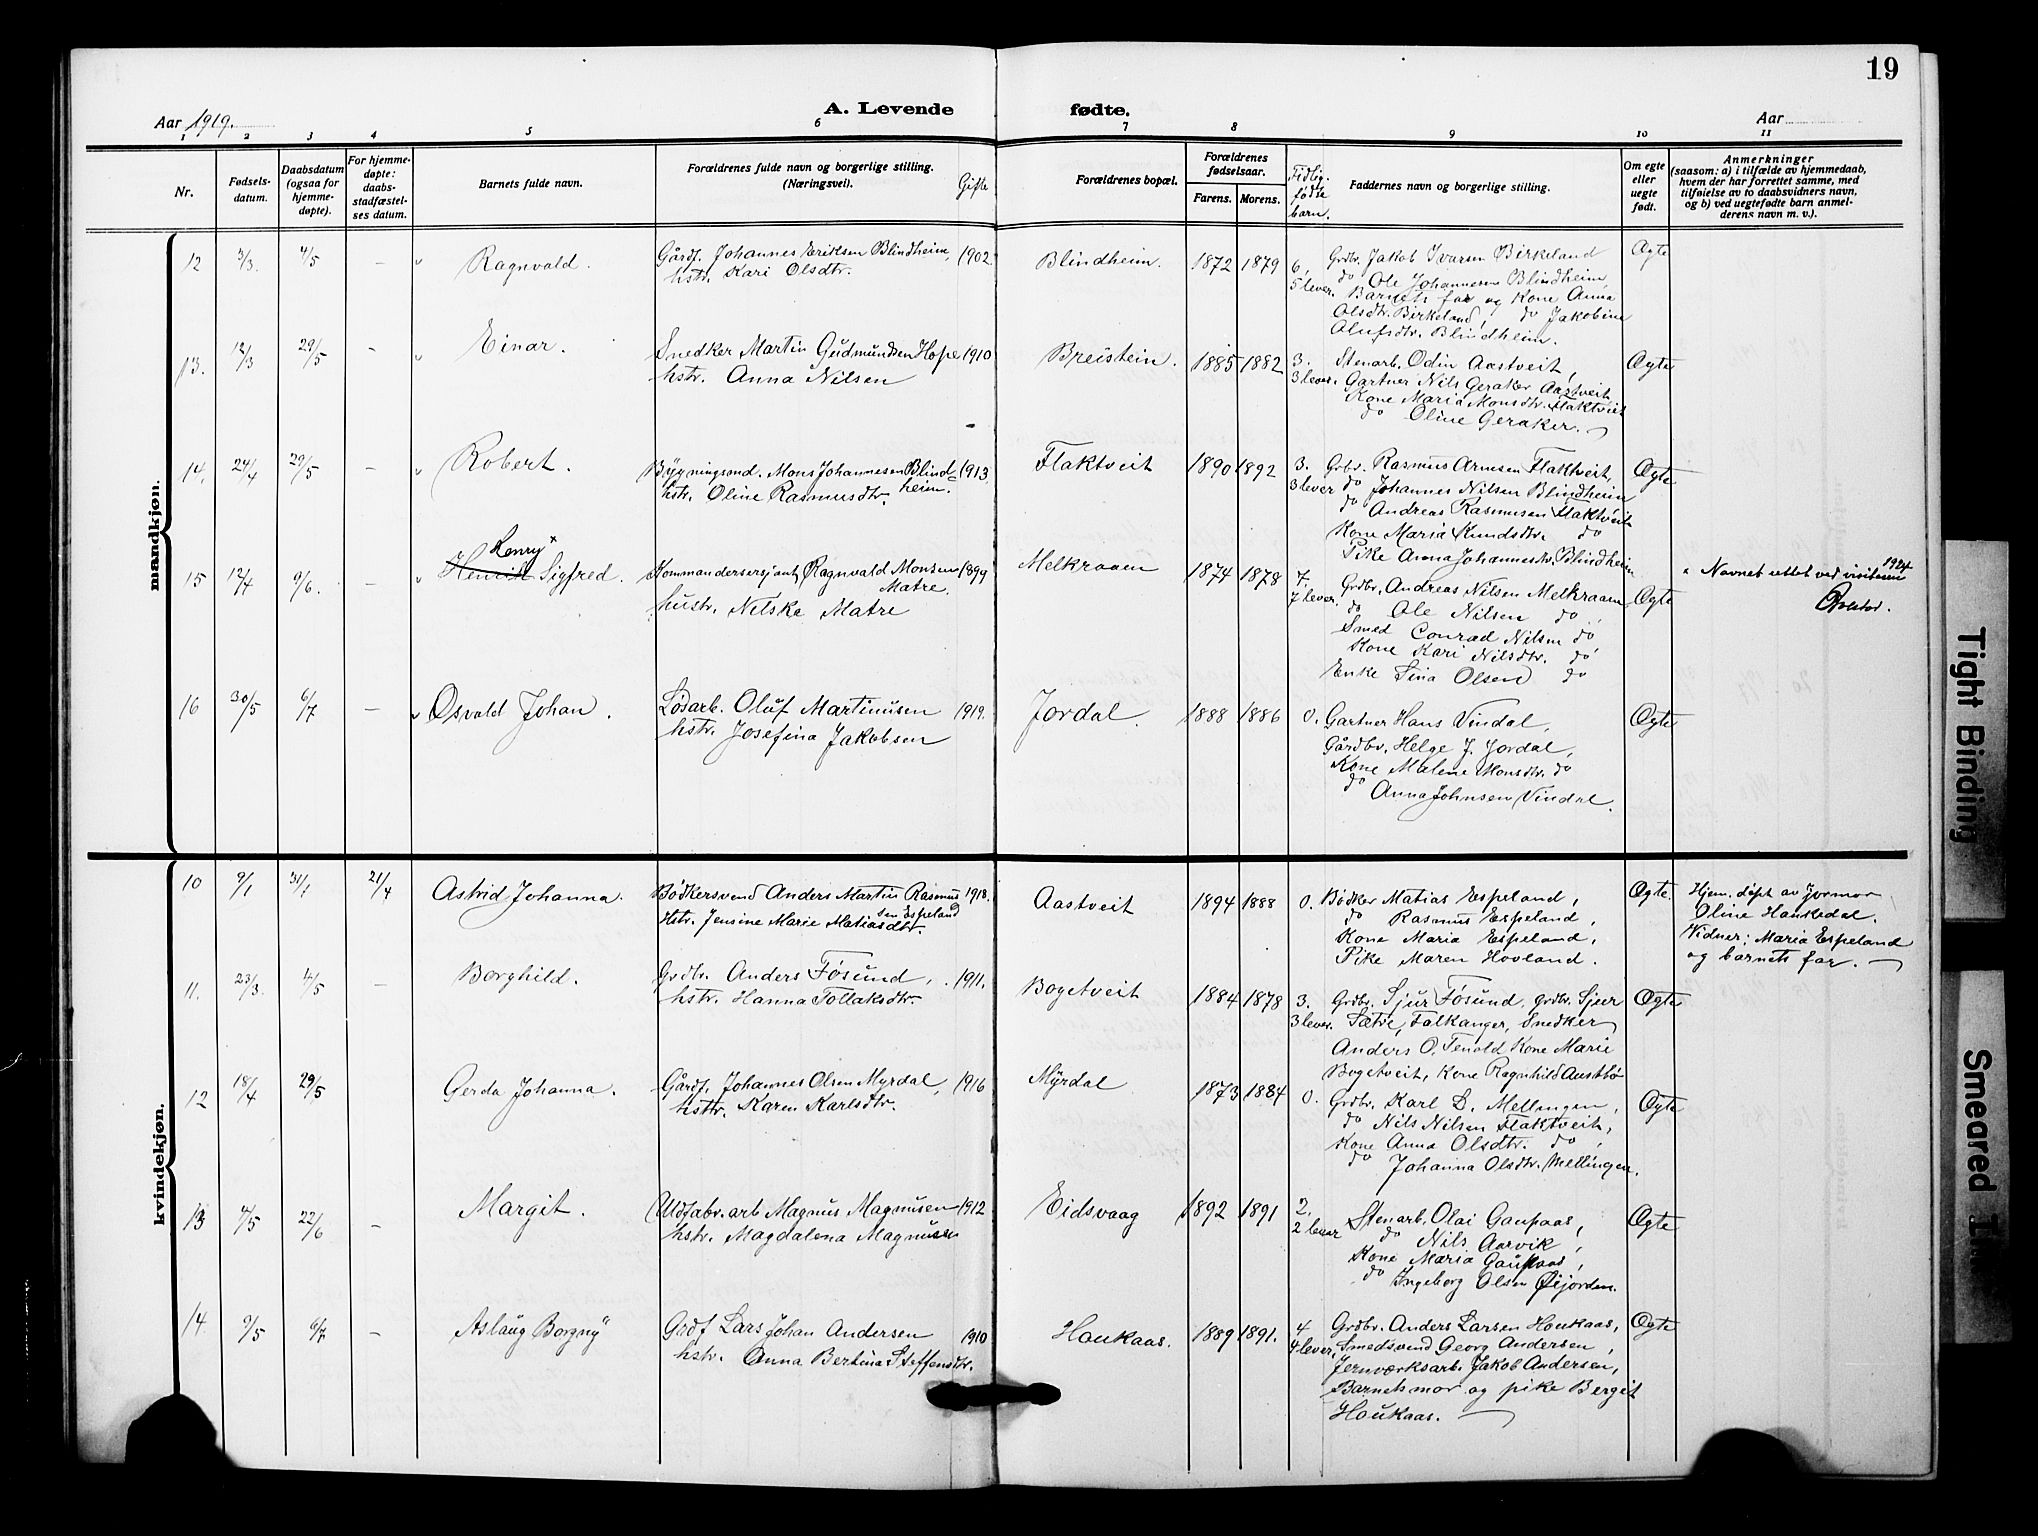 19
A. Levende fødte.
Aar 1919.
Aar
1 2 3 4 5 6 7 8 9 10 11
Nr.
Fødsels-
datum.
Daabsdatum
(ogsaa for
hjemme-
døpte).
For hjemme-
døpte:
daabs-
stadfæstel-
ses datum.
Barnets fulde navn.
Forældrenes fulde navn og borgerlige stilling.
(Næringsvei).
Gifte
Forældrenes bopæl.
Forældrenes
fødselsaar.
Farens. Morens.
Tidlig.
fødte
barn.
Faddernes navn og borgerlige stilling.
Om egte
eller
uegte
født.
Anmerkninger
(saasom: a) i tilfælde av hjemmedaab,
hvem der har forrettet samme, med
tilføielse av to daabsvidners navn,
og b) ved uegtefødte barn anmel-
derens navn m. v.).
mandkjøn.
12 3/3. 4/5 - Ragnvald.
Gårdf. Johannes Eriksen Blindheim, 1902
hstr. Kari Olsdtr.
Blindheim. 1872 1879 6,
5 lever.
Grdbr. Jakob Ivarsen Birkeland
do Ole Johannesen Blindheim,
Barnets far og Kone Anna
Olsdtr. Birkeland, do Jakobine
Olufsdtr. Blindheim.
Ogte
13. 12/3 29/5 - Einar.
Snedker Martin Gudmundsen Hope 1910
hstr. Anna Nilsen
Breistein. 1885 1882 3.
3 lever.
Stenarb. Odin Aastveit,
Gartner Nils Geraker Aastveit,
Kone Maria Monsdtr. Flaktveit
do Oline Geraker.
Ogte
14. 24/4 29/5 - Robert.
Bygningssnd. Mons Johannesen Blind= 1913.
heim.
hstr. Oline Rasmusdtr.
Flaktveit 1890 1892 3.
3 lever
Grbr. Rasmus Arnesen Flaktveit,
do Johannes Nilsen Blindheim
do Andreas Rasmusen Flaktveit
Kone Maria Knudsdtr. do
Pike Anna Johannesdtr. Blindheim
Ogte
15 12/4 9/6. - Henry x
Henrik Sigfred.
Kommandersersjant Ragnvald Monsen 1899
Matre.
hustr. Nilske Matre
Melkraaen 1874 1878 7.
7 lever.
Grdbr. Andreas Nilsen Melkraaen
do Ole Nilsen do,
Smed Conrad Nilsen do
Kone Kari Nilsdtr. do
Enke Sina Olsen do
Ogte
x Navnet rettet ved visitasen 1924
16 30/5 6/7 - Osvald Johan.
Lødsarb. Oluf Martinusen 1919.
hstr. Josefina Jakobsen
Jordal. 1888 1886 0.
Gartner Hans Vindal,
Gårdbr. Helge J. Jordal,
Kone Malene Monsdtr. do
do Anna Johnsen Vindal.
Ogte
kvindekjøn.
10 9/1 31/1 21/4 Astrid Johanna.
Bødkersvend Anders Martin Rasmus 1918.
sen Espeland
Hstr. Jensine Marie Matiasdtr.
Aastveit 1894 1888 0.
Bødker Matias Espeland,
do Rasmus Espeland,
Kone Maria Espeland,
Pike Maren Hovland.
Ogte.
Hjem. døpt av Jormor
Oline Haukedal.
Vidner: Maria Espeland
og barnets far.
11. 23/3. 4/5 - Borghild.
Grdbr. Anders Tøsund, 1911.
hstr. Hanna Tollaksdtr.
Bogetveit 1884 1878 3.
3 lever.
Grdbr. Sjur Tøsund, Grdbr. Sjur
Sætre, Falkanger, Snedker
Anders O. Tenold Kone Marie
Bogetveit, Kone Ragnhild Austbø
Ogte
12 18/4 29/5 Gerda Johanna.
Gårdf. Johannes Olsen Myrdal, 1916
hstr. Karen Karlsdtr.
Myrdal 1873 1884 0.
Grdbr. Karl D. Mellingen,
do Nils Nilsen Flaktveit,
Kone Anna Olsdtr. do,
do Johanna Olsdtr. Mellingen.
Ogte
13 4/5 22/6 - Margit.
Uldfabr. arb Magnus Magnusen 1912
hstr. Magdalena Magnussen
Eidsvaag 1892 1891 2.
2 lever
Stenarb. Olai Gaupaas,
do Nils Aarvik,
Kone Maria Gaupaas,
do Ingeborg Olsen Øijorden.
Ogte
14. 9/5 6/7 - Aslaug Borgny
Grdf Lars Johan Andersen 1910
hstr. Anna Bertina Steffensdtr.
Haukaas. 1889 1891. 4
4 lever,
Grdbr. Anders Larsen Haukaas,
Smedsvend Georg Andersen,
Jernværksarb. Jakob Andersen,
Barnets mor og pike Bergit
Haukaas.
Ogte
Tight Binding
Smeared